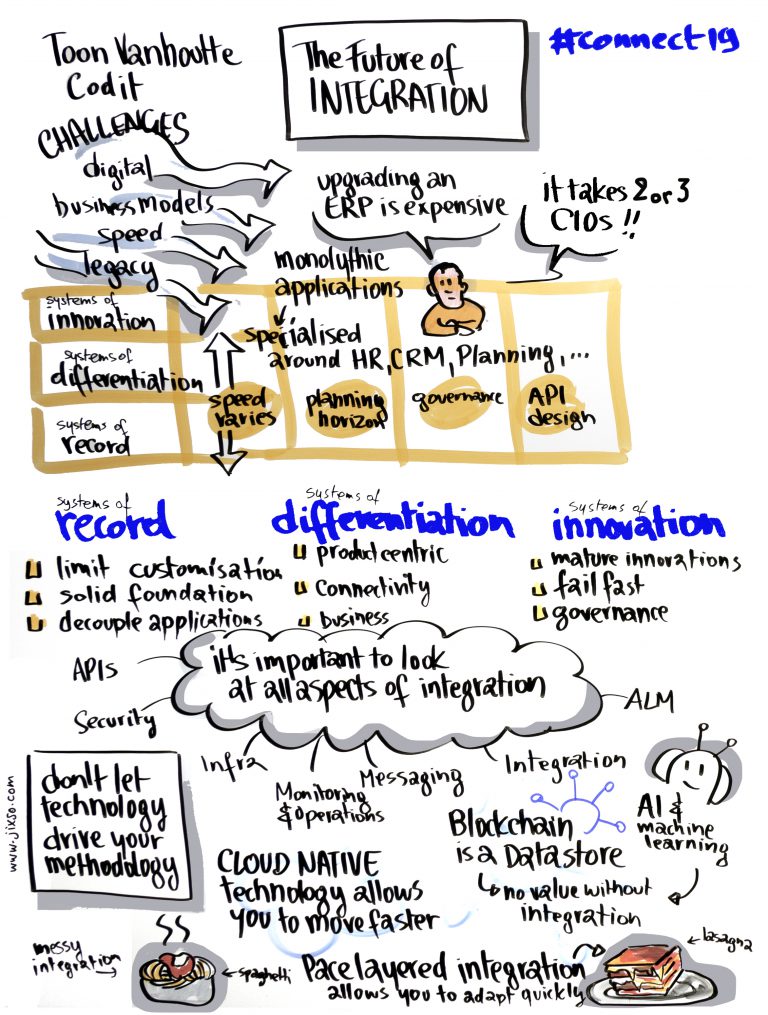 Toon Vanhoutte
Codit
The Future of
INTEGRATION
#connect19
CHALLENGES
digital
business models
speed
legacy
upgrading an
ERP is expensive
it takes 2 or 3
CIOs !!
monolythic
applications
specialised
around HR, CRM, Planning, ...
systems of
innovation
systems of
differentiation
systems of
record
speed
varies
planning
horizon
governance
API
design
systems of
record
limit customisation
solid foundation
decouple applications
systems of
differentiation
product centric
connectivity
business
systems of
innovation
mature innovations
fail fast
governance
it's important to look
at all aspects of integration
APIs
Security
Infra
Monitoring
& operations
Messaging
Integration
ALM
don't let
technology
drive your
methodology
www.jixso.com
CLOUD NATIVE
technology allows
you to move faster
Blockchain
is a Datastore
no value without
integration
AI &
machine
learning
messy
integration
spaghetti
Pace layered integration
allows you to adapt quickly
lasagna